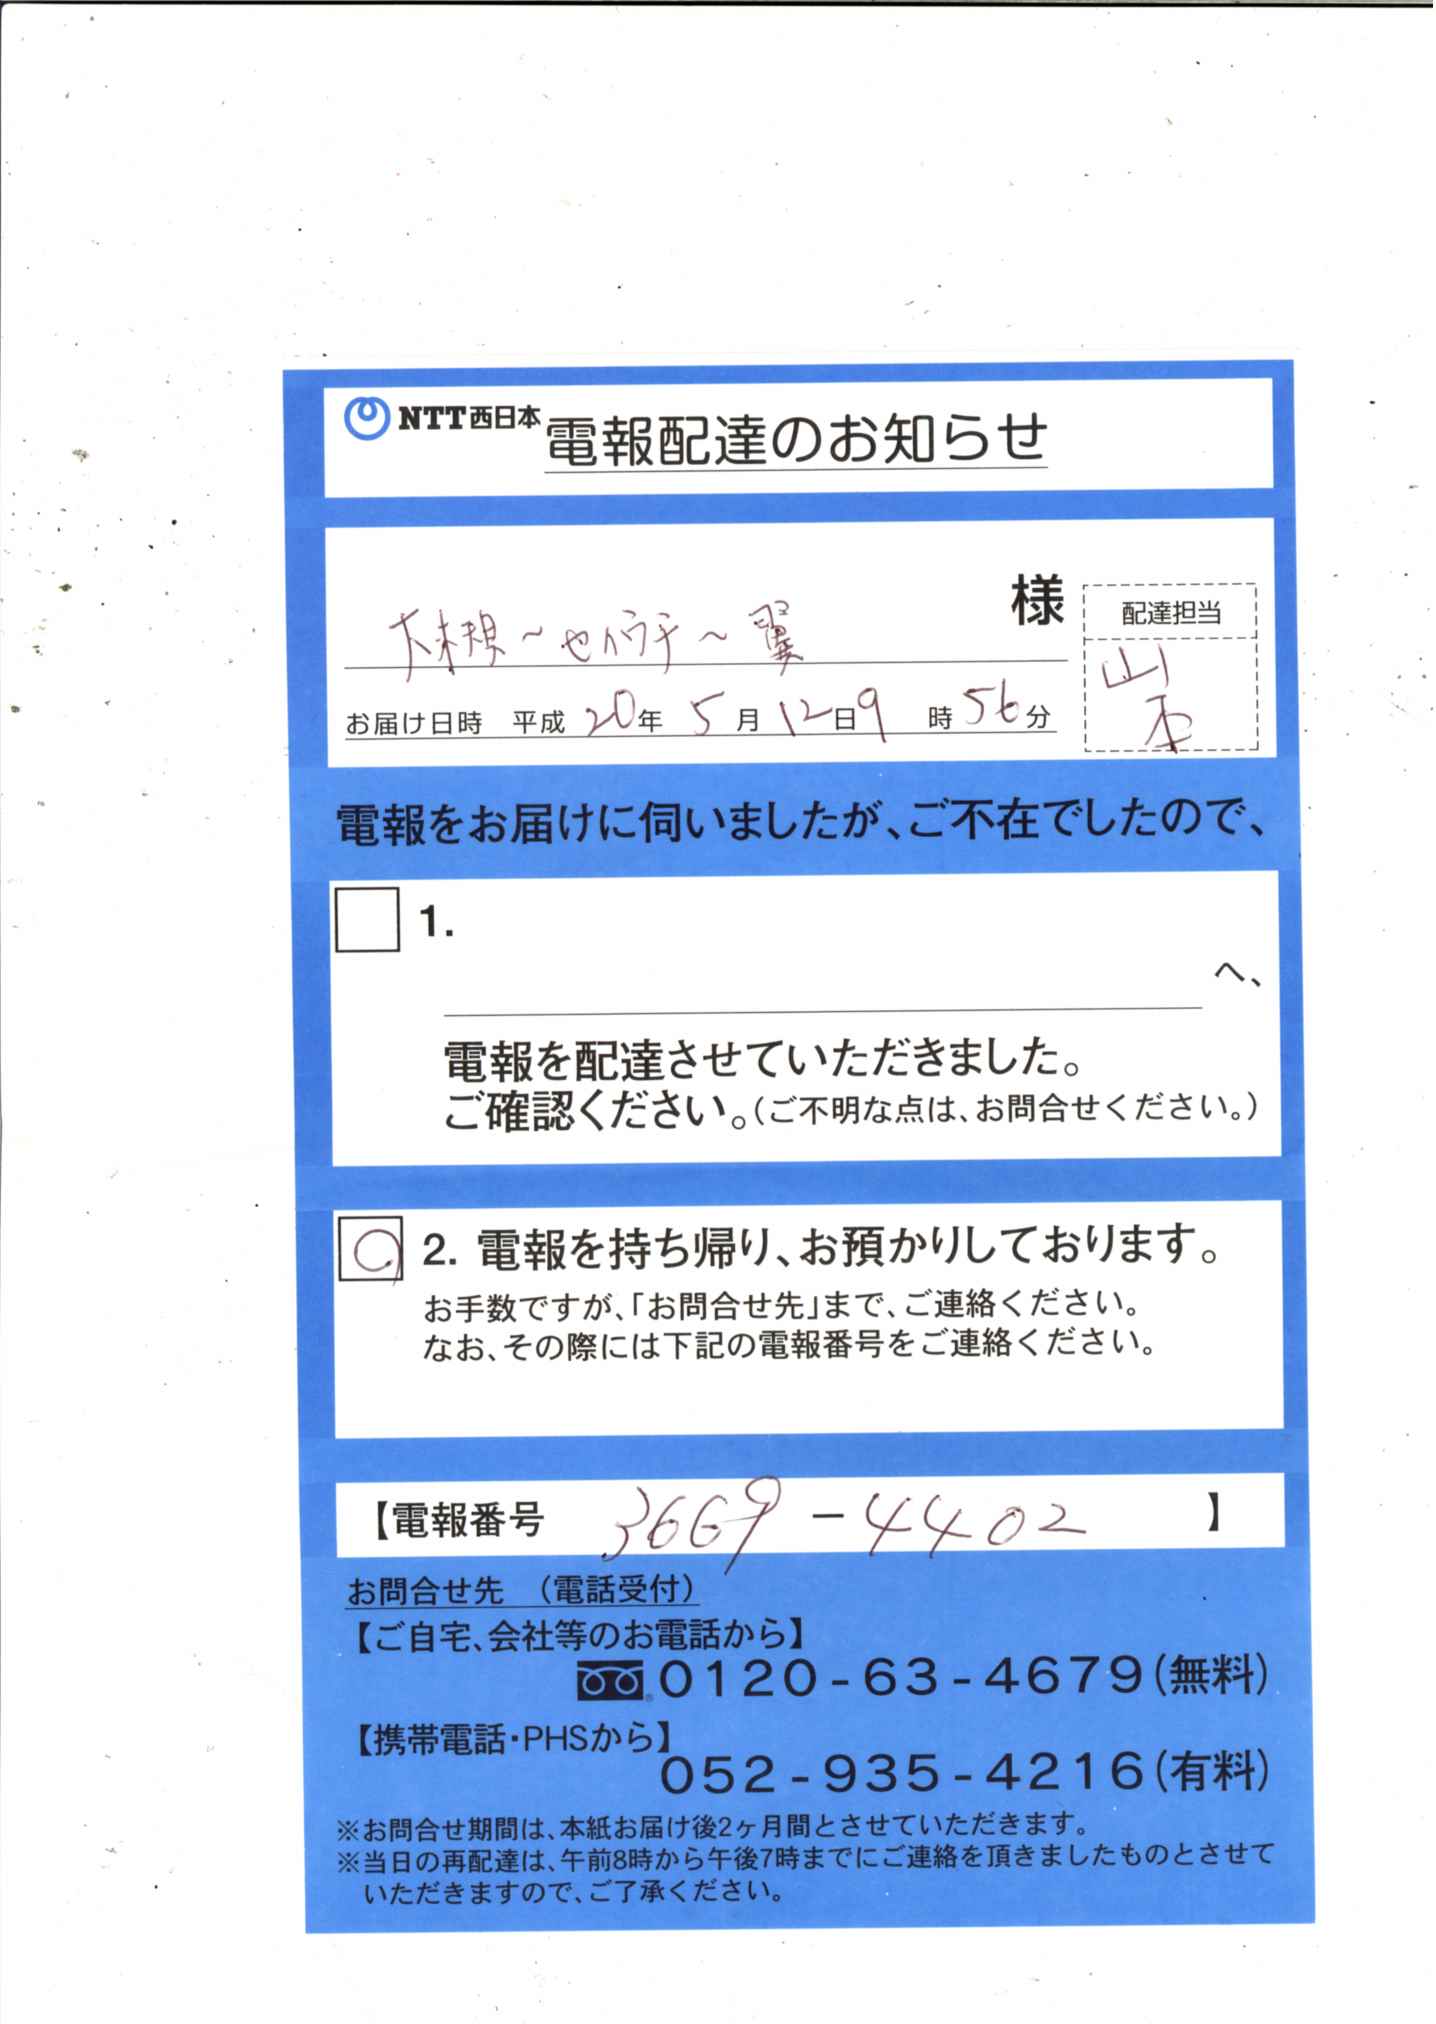 NTT西日本 電報配達のお知らせ
様
配達担当
山本
お届け日時 平成 20年 5月 12日 9時 56分
電報をお届けに伺いましたが、ご不在でしたので、
1.
へ、
電報を配達させていただきました。
ご確認ください。(ご不明な点は、お問合せください。)
2. 電報を持ち帰り、お預かりしております。
お手数ですが、「お問合せ先」まで、ご連絡ください。
なお、その際には下記の電報番号をご連絡ください。
【電報番号 3669-4402 】
お問合せ先 (電話受付)
【ご自宅、会社等のお電話から】
0120-63-4679(無料)
【携帯電話・PHSから】
052-935-4216(有料)
※お問合せ期間は、本紙お届け後2ヶ月間とさせていただきます。
※当日の再配達は、午前8時から午後7時までにご連絡を頂きましたものとさせて
いただきますので、ご了承ください。